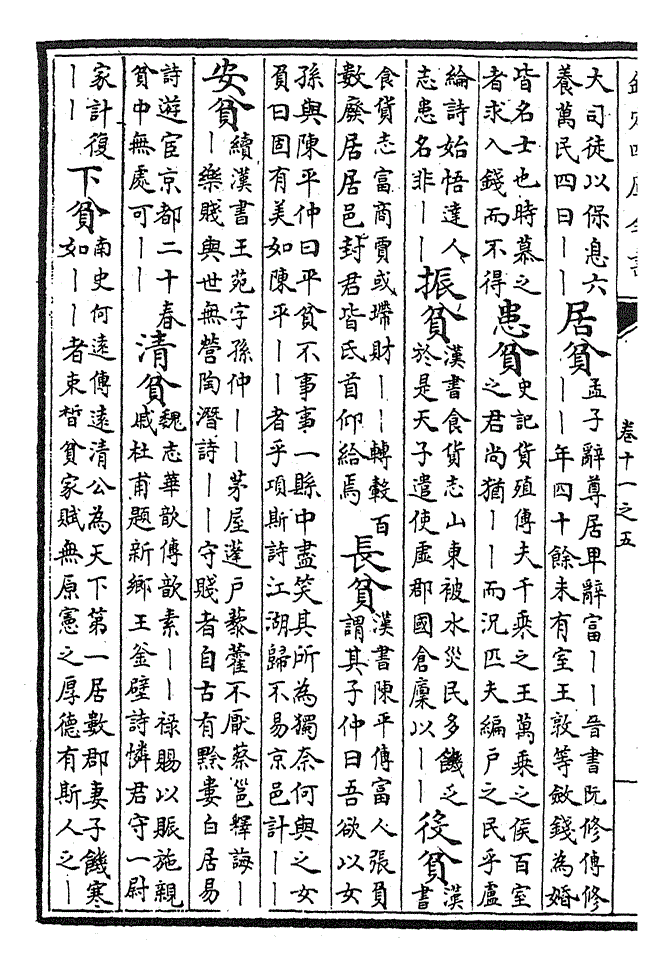 欽定四庫全書
卷十一之五
大司徒以保息六
養萬民四曰丨丨
居貧
孟子辭尊居卑辭富丨丨晉書阮修傳修
丨丨年四十餘未有室王敦等斂錢為婚
皆名士也時慕之
者求入錢而不得
患貧
史記貨殖傳夫千乘之王萬乘之侯百室
之君尚猶丨丨而況匹夫編戶之民乎盧
綸詩始悟達人
志患名非丨丨
振貧
漢書食貨志山東被水災民多饑乏
於是天子遣使虛郡國倉廩以丨丨
役貧
漢
書
食貨志富商賈或墆財丨丨轉轂百
數廢居居邑封君皆氐首仰給焉
長貧
漢書陳平傳富人張負
謂其子仲曰吾欲以女
孫與陳平仲曰平貧不事事一縣中盡笑其所為獨奈何與之女
負曰固有美如陳平丨丨者乎項斯詩江湖歸不易京邑計丨丨
安貧
續漢書王苑字孫仲丨丨茅屋蓬戶藜藿不厭蔡邕釋誨丨
丨樂賤與世無營陶潛詩丨丨守賤者自古有黔婁白居易
詩遊宦京都二十春
貧中無處可丨丨
清貧
魏志華歆傳歆素丨丨祿賜以賑施親
戚杜甫題新鄉王釜壁詩憐君守一尉
家計復
丨丨
下貧
南史何遠傳遠清公為天下第一居數郡妻子饑寒
如丨丨者束晳貧家賦無原憲之厚德有斯人之丨